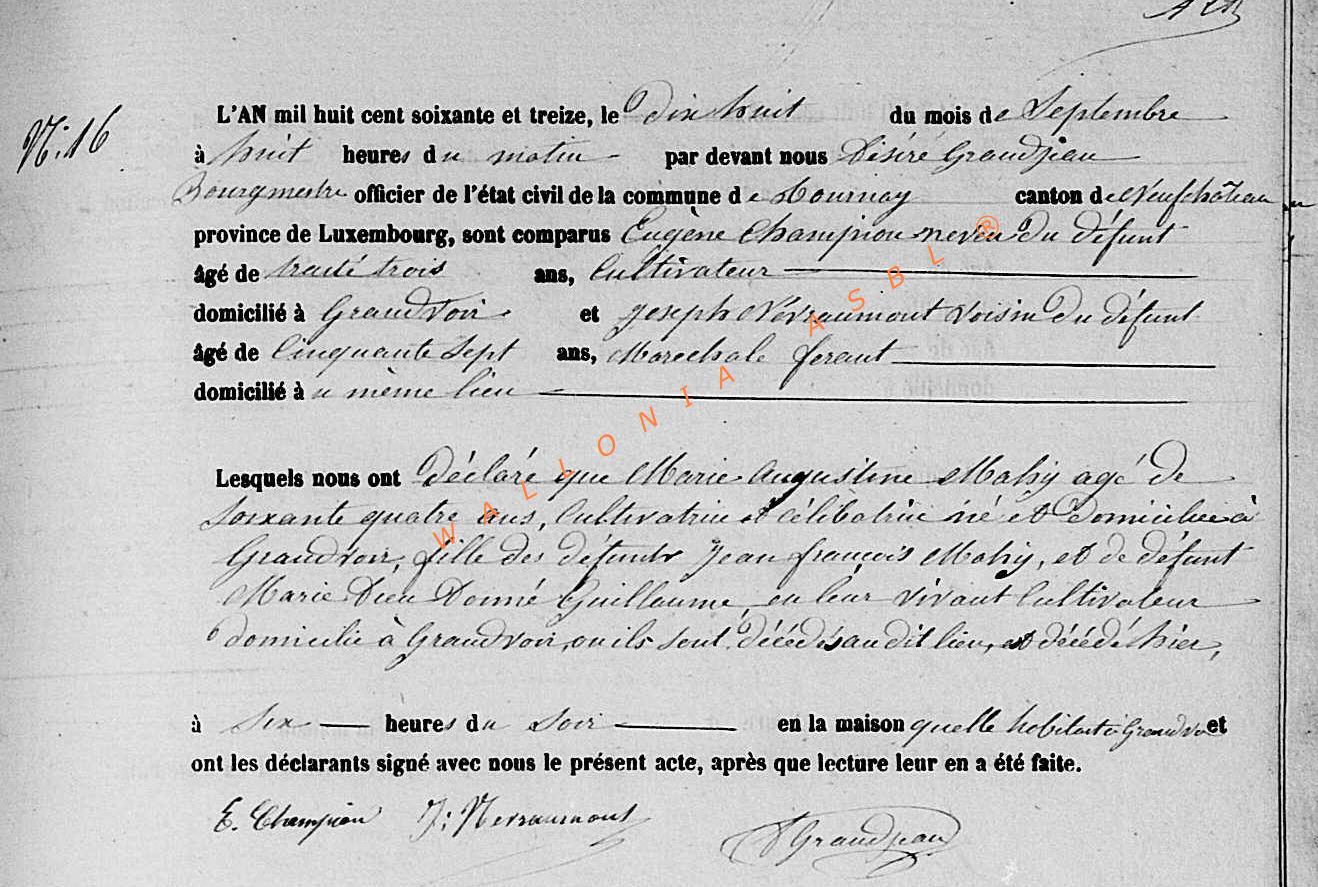 N: 16
L'AN mil huit cent soixante et treize, le dix huit du mois de Septembre
à huit heures du matin par devant nous Désiré Grandjean
Bourgmestre officier de l'état civil de la commune de Tournay canton de Neufchâteau
province de Luxembourg, sont comparus Eugène Champion neveu du défunt
âgé de trente trois ans, Cultivateur
domicilié à Grandvoir et Joseph Névraumont voisin du défunt
âgé de Cinquante Sept ans, Marechale ferant
domicilié à u même lieu
Lesquels nous ont déclaré que Marie Augustine Mahy agé de
Soixante quatre ans, Cultivatrice et célibatrice né et domiciliée à
Grandvoir, fille des défunts Jean françois Mahy, et de défunt
Marie Dieu Donné Guillaume, en leur vivant Cultivateur
domicilié à Grandvoir, ou ils sont décédés au dit lieu, est décédé hier,
à Six heures du Soir en la maison quelle habitait à Grandvoir et
ont les déclarants signé avec nous le présent acte, après que lecture leur en a été faite.
E. Champion J: Nevraumont
D Grandjean
WALLONIA ASBL ®